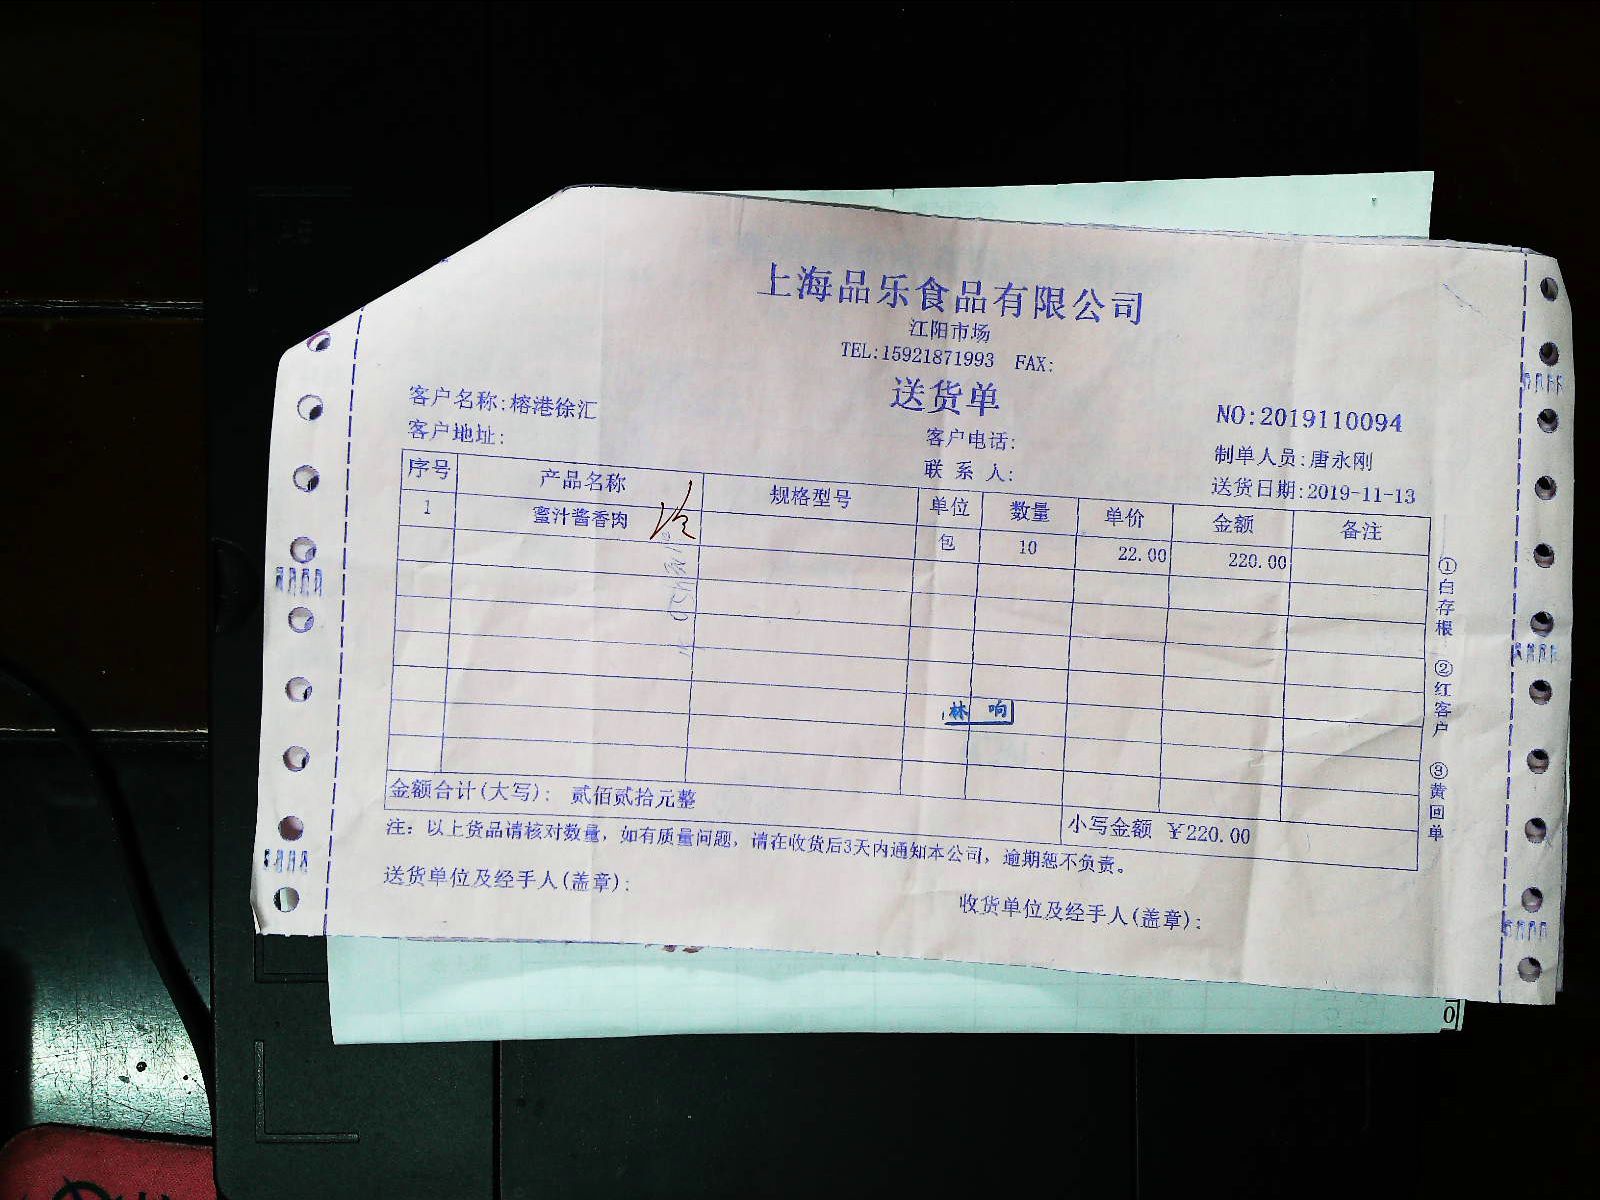 上海品乐食品有限公司
江阳市场
TEL:15921871993 FAX:
送货单
客户名称:榕港徐汇
NO:2019110094
客户地址:
客户电话:
制单人员:唐永刚
联 系 人:
送货日期:2019-11-13
序号 产品名称 规格型号 单位 数量 单价 金额 备注
1 蜜汁酱香肉 包 10 22.00 220.00
林 响
金额合计(大写): 贰佰贰拾元整 小写金额 ￥220.00
注: 以上货品请核对数量, 如有质量问题, 请在收货后3天内通知本公司, 逾期恕不负责。
送货单位及经手人(盖章):
收货单位及经手人(盖章):
①白存根 ②红客户 ③黄回单